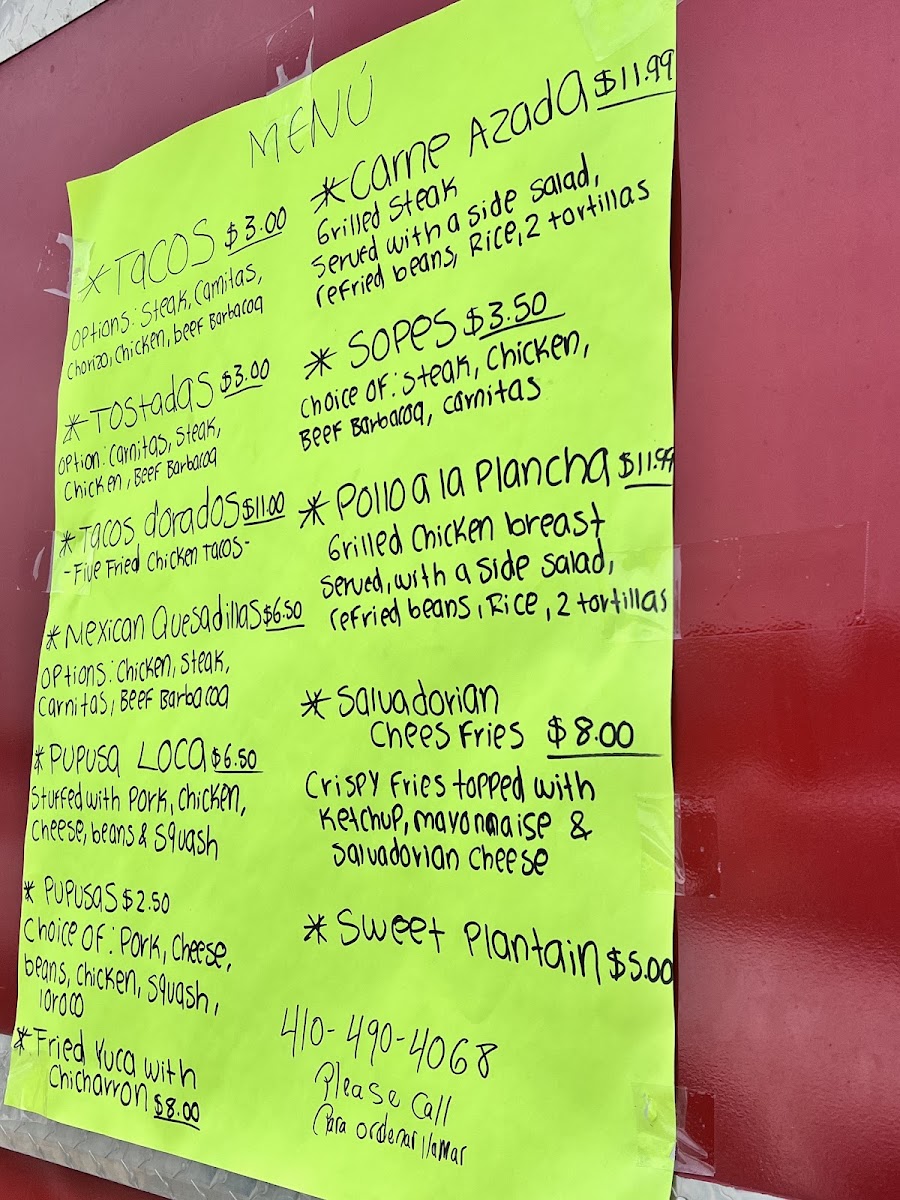 MENÚ
* Tacos $3.00
Options: Steak, Carnitas,
Chorizo, Chicken, beef Barbacoa
* Tostadas $3.00
Option: Carnitas, Steak,
Chicken, Beef Barbacoa
* Tacos dorados $11.00
- Five Fried Chicken Tacos -
* Mexican Quesadillas $6.50
Options: Chicken, Steak,
Carnitas, Beef Barbacoa
* Pupusa Loca $6.50
Stuffed with Pork, chicken,
cheese, beans & Squash
* Pupusas $2.50
Choice of: Pork, Cheese,
beans, chicken, squash,
loroco
* Fried Yuca with
Chicharron $8.00
* Carne Azada $11.99
Grilled Steak
Served with a side salad,
refried beans, Rice, 2 tortillas
* Sopes $3.50
Choice of: Steak, Chicken,
Beef Barbacoa, Carnitas
* Pollo a la Plancha $11.99
Grilled Chicken breast
Served, with a side salad,
refried beans, Rice, 2 tortillas
* Salvadorian
Chees Fries $8.00
Crispy Fries topped with
Ketchup, mayonnaise &
Salvadorian Cheese
* Sweet Plantain $5.00
410-490-4068
Please Call
Para ordenar llamar